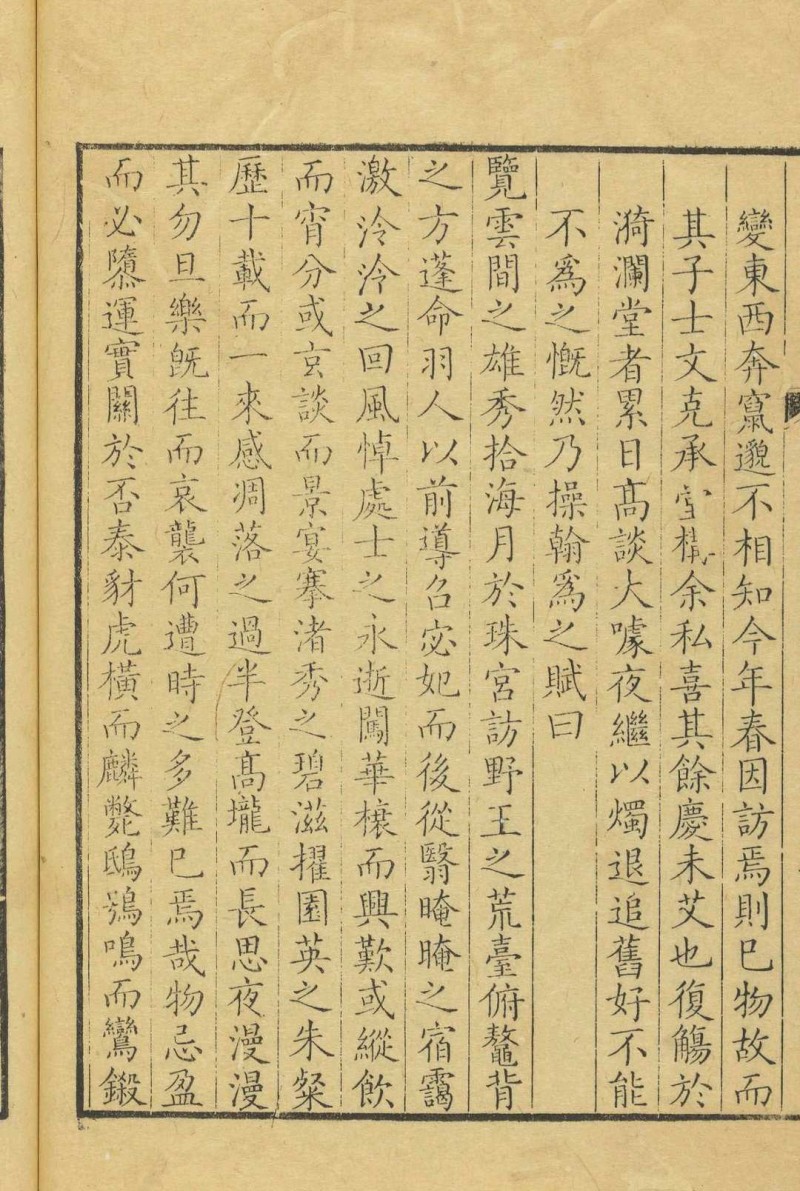 變東西奔竄邈不相知今年春因訪焉則已物故而
其子士文克承堂構余私喜其餘慶未艾也復觴於
漪瀾堂者累日髙談大噱夜繼以燭退追舊好不能
不爲之慨然乃操翰爲之賦曰
覽雲間之雄秀拾海月於珠宮訪野王之荒臺俯鼇背
之方蓬命羽人以前導召宓妃而後從翳晻晻之宿靄
激泠泠之回風悼處士之永逝闖華榱而興歎或縱飲
而宵分或玄談而景宴搴渚秀之碧滋擢園英之朱粲
歷十載而一來感凋落之過半登髙壠而長思夜漫漫
其勿旦樂既往而哀襲何遭時之多難已焉哉物忌盈
而必隳運實關於否泰豺虎橫而麟斃鴟鴞鳴而鸞鎩